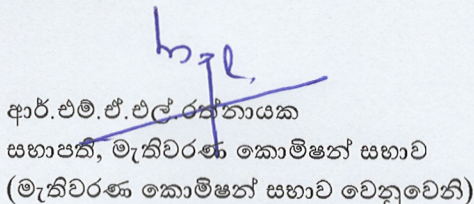 ආර්.එම්.ඒ.එල්.රත්නායක
සභාපති, මැතිවරණ කොමිෂන් සභාව
(මැතිවරණ කොමිෂන් සභාව වෙනුවෙනි)